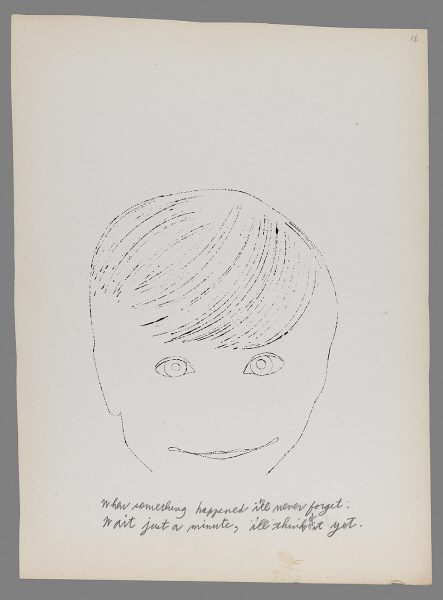 18
When something happened i'll never forget.
Wait just a minute, i'll think of it yet.